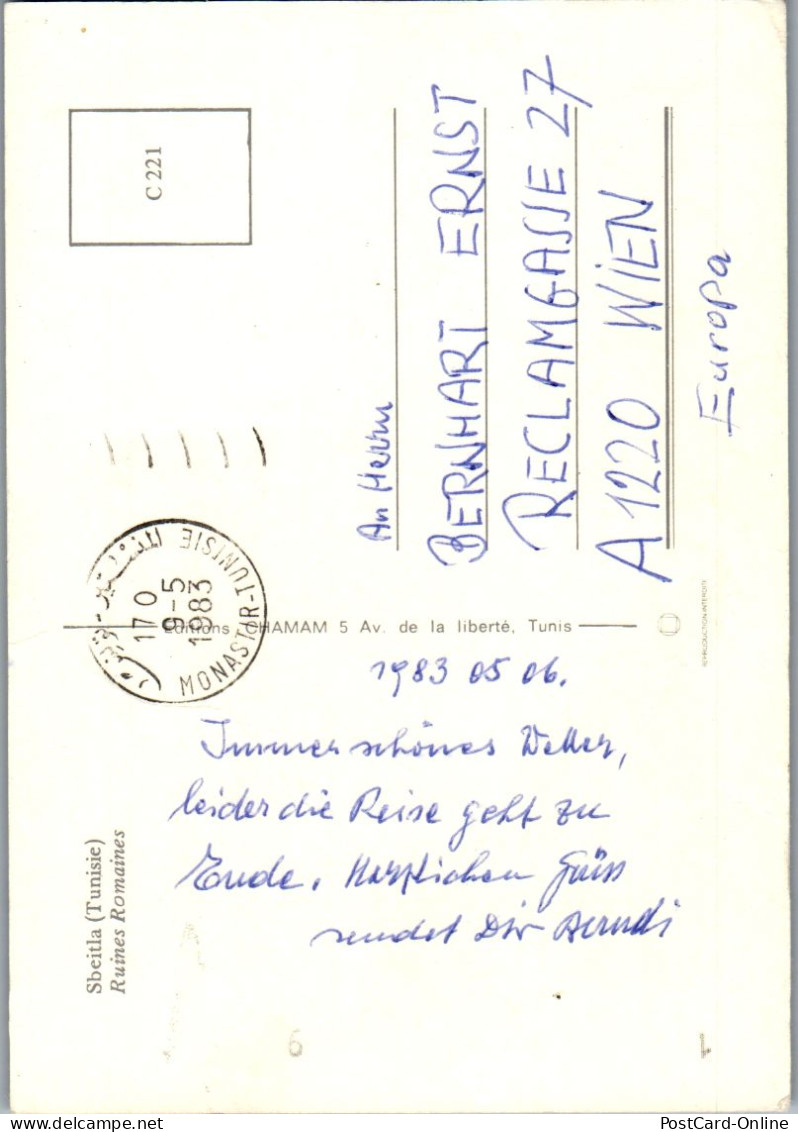 Sbeitla (Tunisie)
Ruines Romaines
1983 05 06.
Immer schönes Wetter,
leider die Reise geht zu
Ende. Herzlichen Grüss
sendet Dir Berndi
Editions CHAMAM 5 Av. de la liberté, Tunis
170
9-5
1983
MONASTIR-TUNISIE
C 221
An Herrn
BERNHART ERNST
RECLAMGASSE 27
A 1220 WIEN
Europa
REPRODUCTION INTERDITE
6
1
PostCard-Online